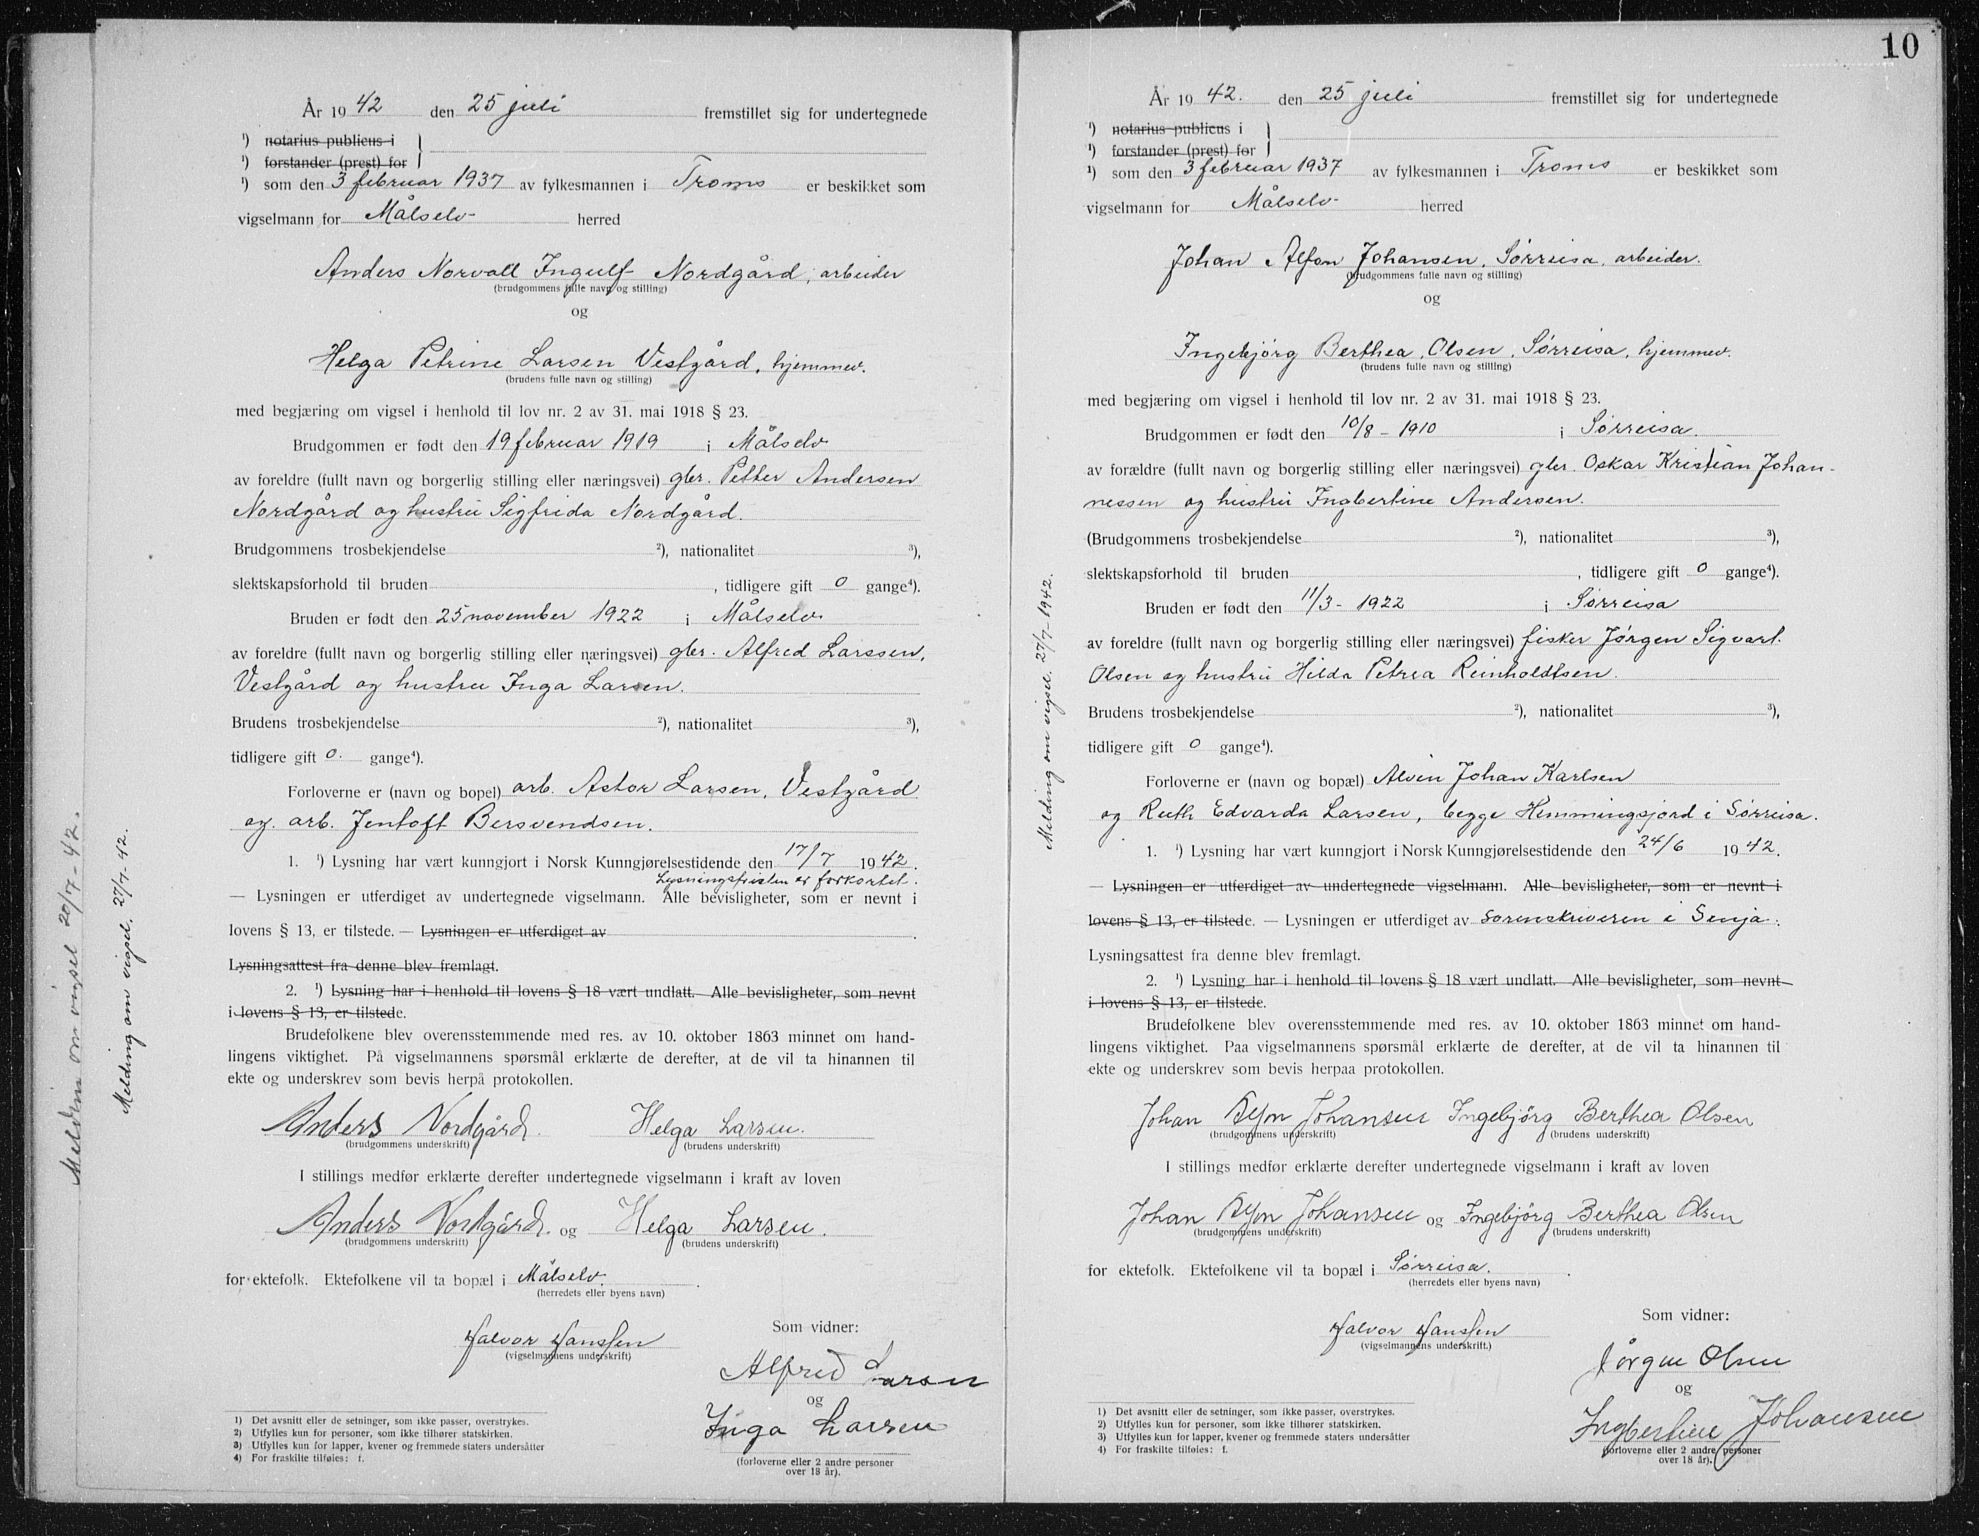 År 1942 den 25 juli fremstillet sig for undertegnede
¹) notarius publicus i
¹) forstander (prest) for
¹) som den 3 februar 1937 av fylkesmannen i Troms er beskikket som
vigselmann for Målselv herred
Anders Norvall Ingulf Nordgård, arbeider
(brudgommens fulle navn og stilling)
og
Helga Petrine Larsen Vestgård, hjemmev.
(brudens fulle navn og stilling)
med begjæring om vigsel i henhold til lov nr. 2 av 31. mai 1918 § 23.
Brudgommen er født den 19 februar 1919 i Målselv
av foreldre (fullt navn og borgerlig stilling eller næringsvei) gbr. Petter Andersen
Nordgård og hustru Sigfrida Nordgård.
Brudgommens trosbekjendelse ²), nationalitet ³),
slektskapsforhold til bruden , tidligere gift 0 gange⁴).
Bruden er født den 25 november 1922 i Målselv
av foreldre (fullt navn og borgerlig stilling eller næringsvei) gbr. Alfred Larssen,
Vestgård og hustru Inga Larsen.
Brudens trosbekjendelse ²), nationalitet ³),
tidligere gift 0. gange⁴).
Forloverne er (navn og bopel) arb. Astor Larsen, Vestgård
og. arb. Jentoft Bersvendsen.
1. ¹) Lysning har vært kunngjort i Norsk Kunngjørelsestidende den 17/7 1942.
Lysningsfristen er forkortet.
— Lysningen er utferdiget av undertegnede vigselmann. Alle bevisligheter, som er nevnt i
lovens § 13, er tilstede. — Lysningen er utferdiget av .
Lysningsattest fra denne blev fremlagt.
2. ¹) Lysning har i henhold til lovens § 18 vært undlatt. Alle bevisligheter, som nevnt
i lovens § 13, er tilstede.
Brudefolkene blev overensstemmende med res. av 10. oktober 1863 minnet om hand-
lingens viktighet. På vigselmannens spørsmål erklærte de derefter, at de vil ta hinannen til
ekte og underskrev som bevis herpå protokollen.
Anders Nordgård. Helga Larsen.
(brudgommens underskrift) (brudens underskrift)
I stillings medfør erklærte derefter undertegnede vigselmann i kraft av loven
Anders Nordgård. og Helga Larsen.
(brudgommens underskrift) (brudens underskrift)
for ektefolk. Ektefolkene vil ta bopæl i Målselv. .
(herredets eller byens navn)
Halvor Hanssen
(vigselmannens underskrift)
Som vidner:
Alfred Larsen
og
Inga Larsen
(forloverne eller 2 andre personer
over 18 år).
1) Det avsnitt eller de setninger, som ikke passer, overstrykes.
2) Utfylles kun for personer, som ikke tilhører statskirken.
3) Utfylles kun for lapper, kvener og fremmede staters undersåtter
4) For fraskilte tilføies: f.
Meldin om vigsel 20/7-42.
Melding om vigsel. 27/7-42.
10
År 1942. den 25 juli fremstillet sig for undertegnede
¹) notarius publicus i
¹) forstander (prest) for
¹) som den 3 februar 1937 av fylkesmannen i Troms er beskikket som
vigselmann for Målselv herred
Johan Alfon Johansen, Sørreisa, arbeider.
(brudgommens fulle navn og stilling)
og
Ingebjörg Berthea Olsen, Sørreisa, hjemmev.
(brudens fulle navn og stilling)
med begjæring om vigsel i henhold til lov nr. 2 av 31. mai 1918 § 23.
Brudgommen er født den 10/8 - 1910 i Sørreisa.
av forældre (fullt navn og borgerlig stilling eller næringsvei) gbr. Oskar Kristian Johan-
nessen og hustru Ingbertine Andersen.
(Brudgommens trosbekjendelse ²), nationalitet ³),
slektskapsforhold til bruden , tidligere gift 0 gange⁴).
Bruden er født den 11/3 - 1922 i Sørreisa
av foreldre (fullt navn og borgerlig stilling eller næringsvei) fisker Jørgen Sigvart
Olsen og hustru Hilda Petrea Reinholdtsen.
Brudens trosbekjendelse ²), nationalitet ³),
tidligere gift 0 gange⁴).
Forloverne er (navn og bopæl) Alvin Johan Karlsen
og Ruth Edvarda Larsen, begge Hemmingsjord i Sørreisa.
1. ¹) Lysning har vært kunngjort i Norsk Kunngjørelsestidende den 24/6 1942.
— Lysningen er utferdiget av undertegnede vigselmann. Alle bevisligheter, som er nevnt i
lovens § 13, er tilstede. — Lysningen er utferdiget av sorenskriveren i Senja.
Lysningsattest fra denne blev fremlagt.
2. ¹) Lysning har i henhold til lovens § 18 vært undlatt. Alle bevisligheter, som nevnt
i lovens § 13, er tilstede.
Brudefolkene blev overensstemmende med res. av 10. oktober 1863 minnet om hand-
lingens viktighet. Paa vigselmannens spørsmål erklærte de derefter, at de vil ta hinannen til
ekte og underskrev som bevis herpaa protokollen.
Johan Alfon Johansen Ingebjörg Berthea Olsen
(brudgommens underskrift) (brudens underskrift)
I stillings medfør erklærte derefter undertegnede vigselmann i kraft av loven
Johan Alfon Johansen og Ingebjörg Berthea Olsen
(brudgommens underskrift) (brudens underskrift)
for ektefolk. Ektefolkene vil ta bopæl i Sørreisa. .
(herredets eller byens navn)
Halvor Hanssen
(vigselmannens underskrift.)
Som vidner:
Jørgen Olsen
og
Ingbertine Johansen
(forloverne eller 2 andre personer
over 18 år).
1) Det avsnitt eller de setninger, som ikke passer, overstrykes.
2) Utfylles kun for personer, som ikke tilhører statskirken.
3) Utfylles kun for lapper, kvener og fremmede staters undersåtter
4) For fraskilte tilføies: f.
Melding om vigsel. 27/7-1942.